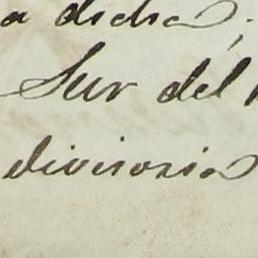 a dicha;
Sur del
divisoria